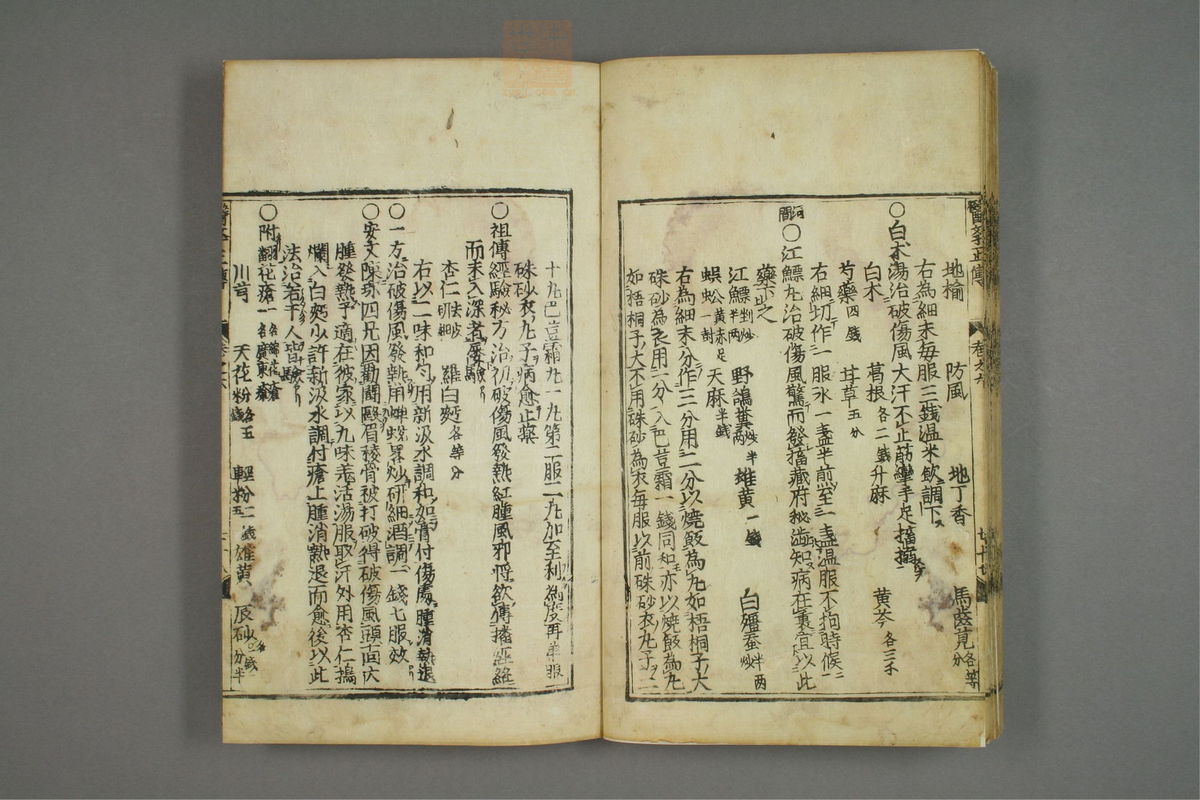 醫學正傳 卷之六
地榆 防風 地丁香 馬莧各等分
右為細末每服三錢温米飲調下
○白朮湯治破傷風大汗不止筋攣手足搐搦
白朮 葛根各二錢 升麻 黄芩各三
芍藥四錢 甘草五分
右細切作一服水一盞半煎至一盞温服不拘時候
河間○江鰾丸治破傷風驚而發搐藏府秘澁知病在裏宜以此
藥下之
江鰾半兩剉炒 野鴿糞半兩炒 雄黄一錢 白殭蚕半兩炒
蜈蚣一對 天麻半錢
右為細末分作三分用二分以燒飯為丸如梧桐子大
硃砂為衣用一分入巴豆霜一錢同和亦以燒飯為丸
如梧桐子大不用硃砂為衣每服以前硃砂衣丸子二
十丸巴豆霜丸一丸第二服二丸加至利為度再單服
硃砂衣丸子病愈止藥
○祖傳經驗秘方治初破傷風發熱紅腫風邪將欲傳播經絡
而未入深者屢驗
杏仁 羅白麪各等分
右以二味和匀用新汲水調和如膏付傷處腫消熱退
○一方治破傷風發熱用蟬蛻畧炒研細酒調一錢七服效
○安文陳珠四兄因勸鬪毆眉稜骨被打破得破傷風頭面大
腫發熱予適在彼家以九味羌活湯服取汗外用杏仁搗
爛入白麪少許新汲水調付瘡上腫消熱退而愈後以此
法治若干人皆驗
○附翻花瘡一名綿花瘡一名廣東瘡
川芎 天花粉各五錢 輕粉二錢五 雄黄 辰砂各二錢分半